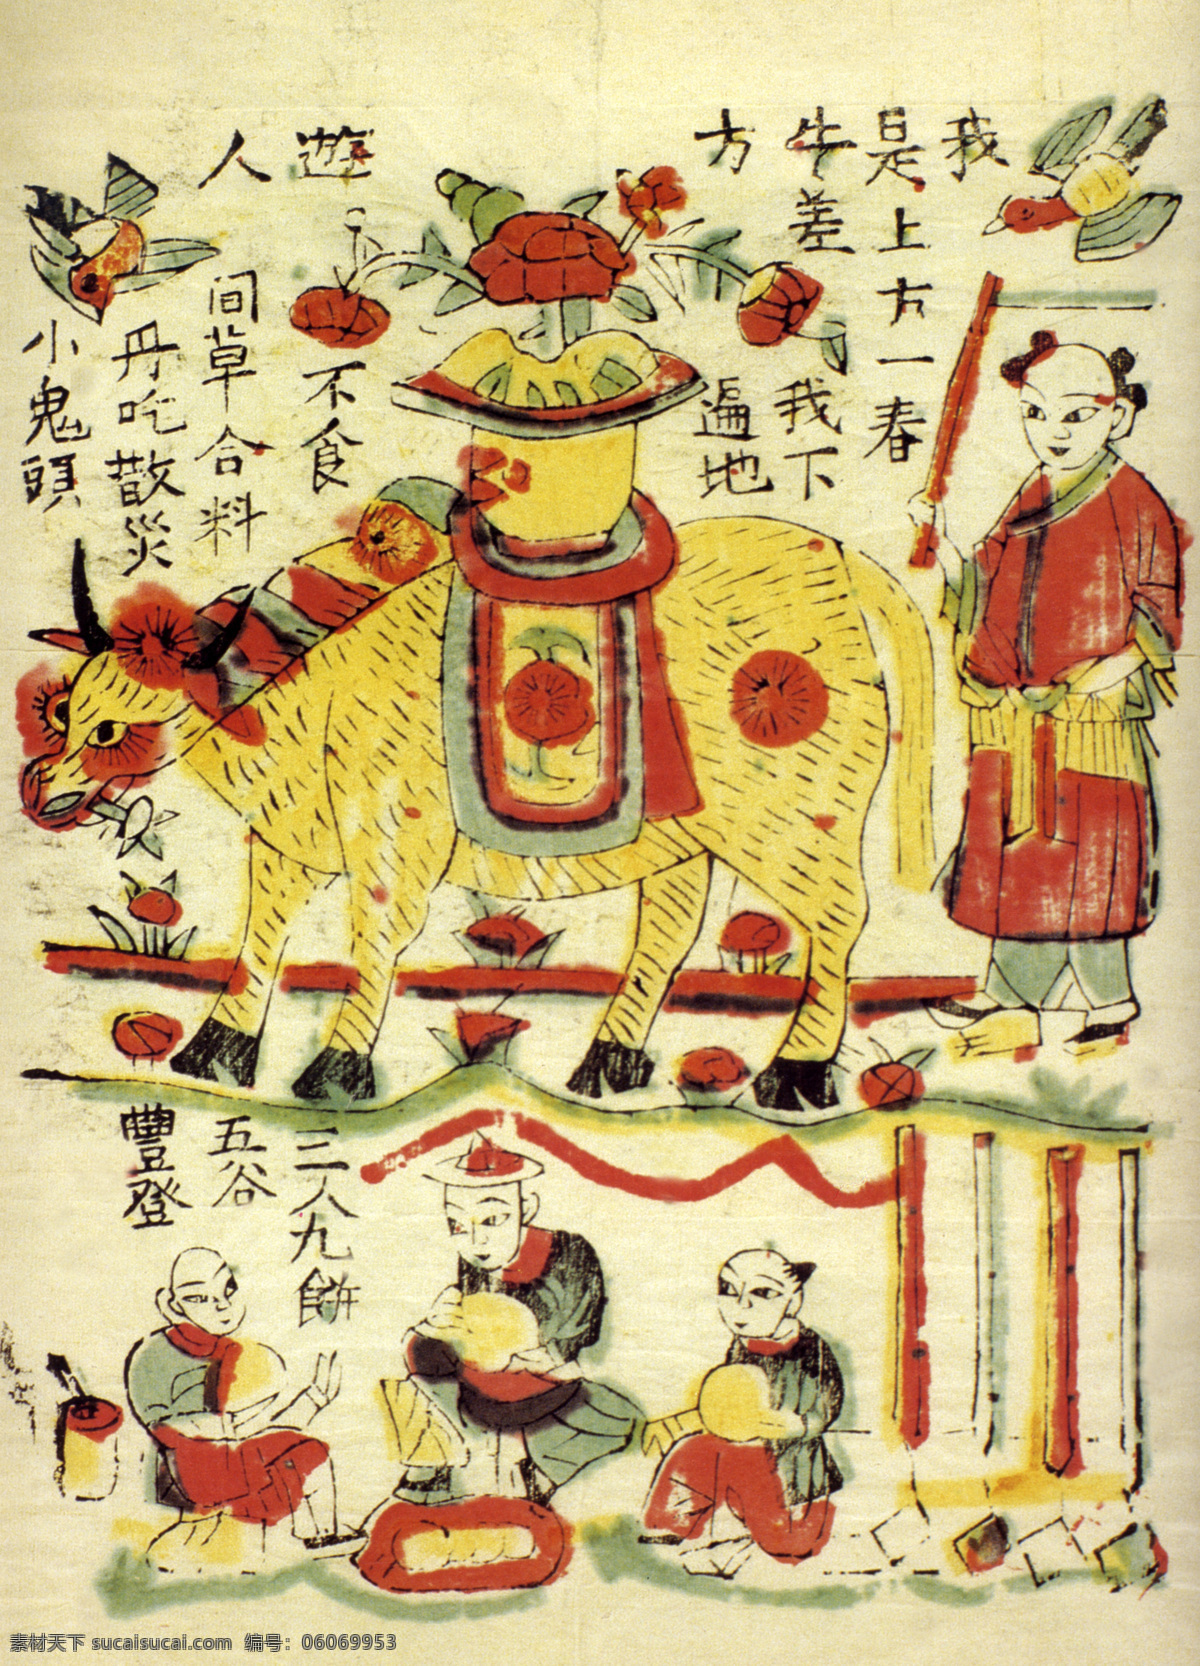 我
是上方一春
牛差我下
方遍地
遊不食
人間草合料
丹吃散災
小鬼頭
三人九餅
五谷
豐登
素材天下 sucaisucai.com 编号：06069953